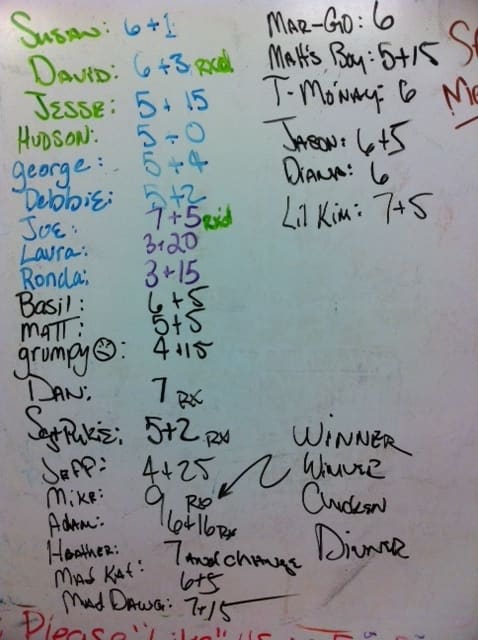 Susan: 6+1
David: 6+3 RXd
Jesse: 5+15
Hudson: 5+0
george: 5+4
Debbie: 5+2
Joe: 7+5 Rx'd
Laura: 3+20
Ronda: 3+15
Basil: 6+5
Matt: 5+5
grumpy ☹: 4+15
Dan: 7 RX
Sgt Pukie: 5+2 RX
Jeff: 4+25
Mike: 9 RX
Adam: 6+16 RX
Heather: 7 and change
Mad Kat: 6+5
Mad Dawg: 7+15
Please "Like"
Mar-Go: 6
Matt's Boy: 5+15
T-Monay: 6
Jason: 6+5
Diana: 6
Lil Kim: 7+5
Winner
Winner
Chicken
Dinner